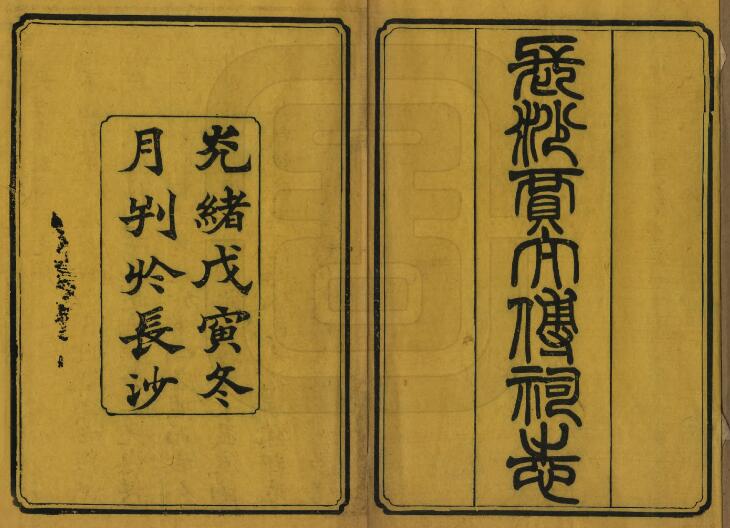 長沙賈太傅祠志
光緒戊寅冬
月刋於長沙